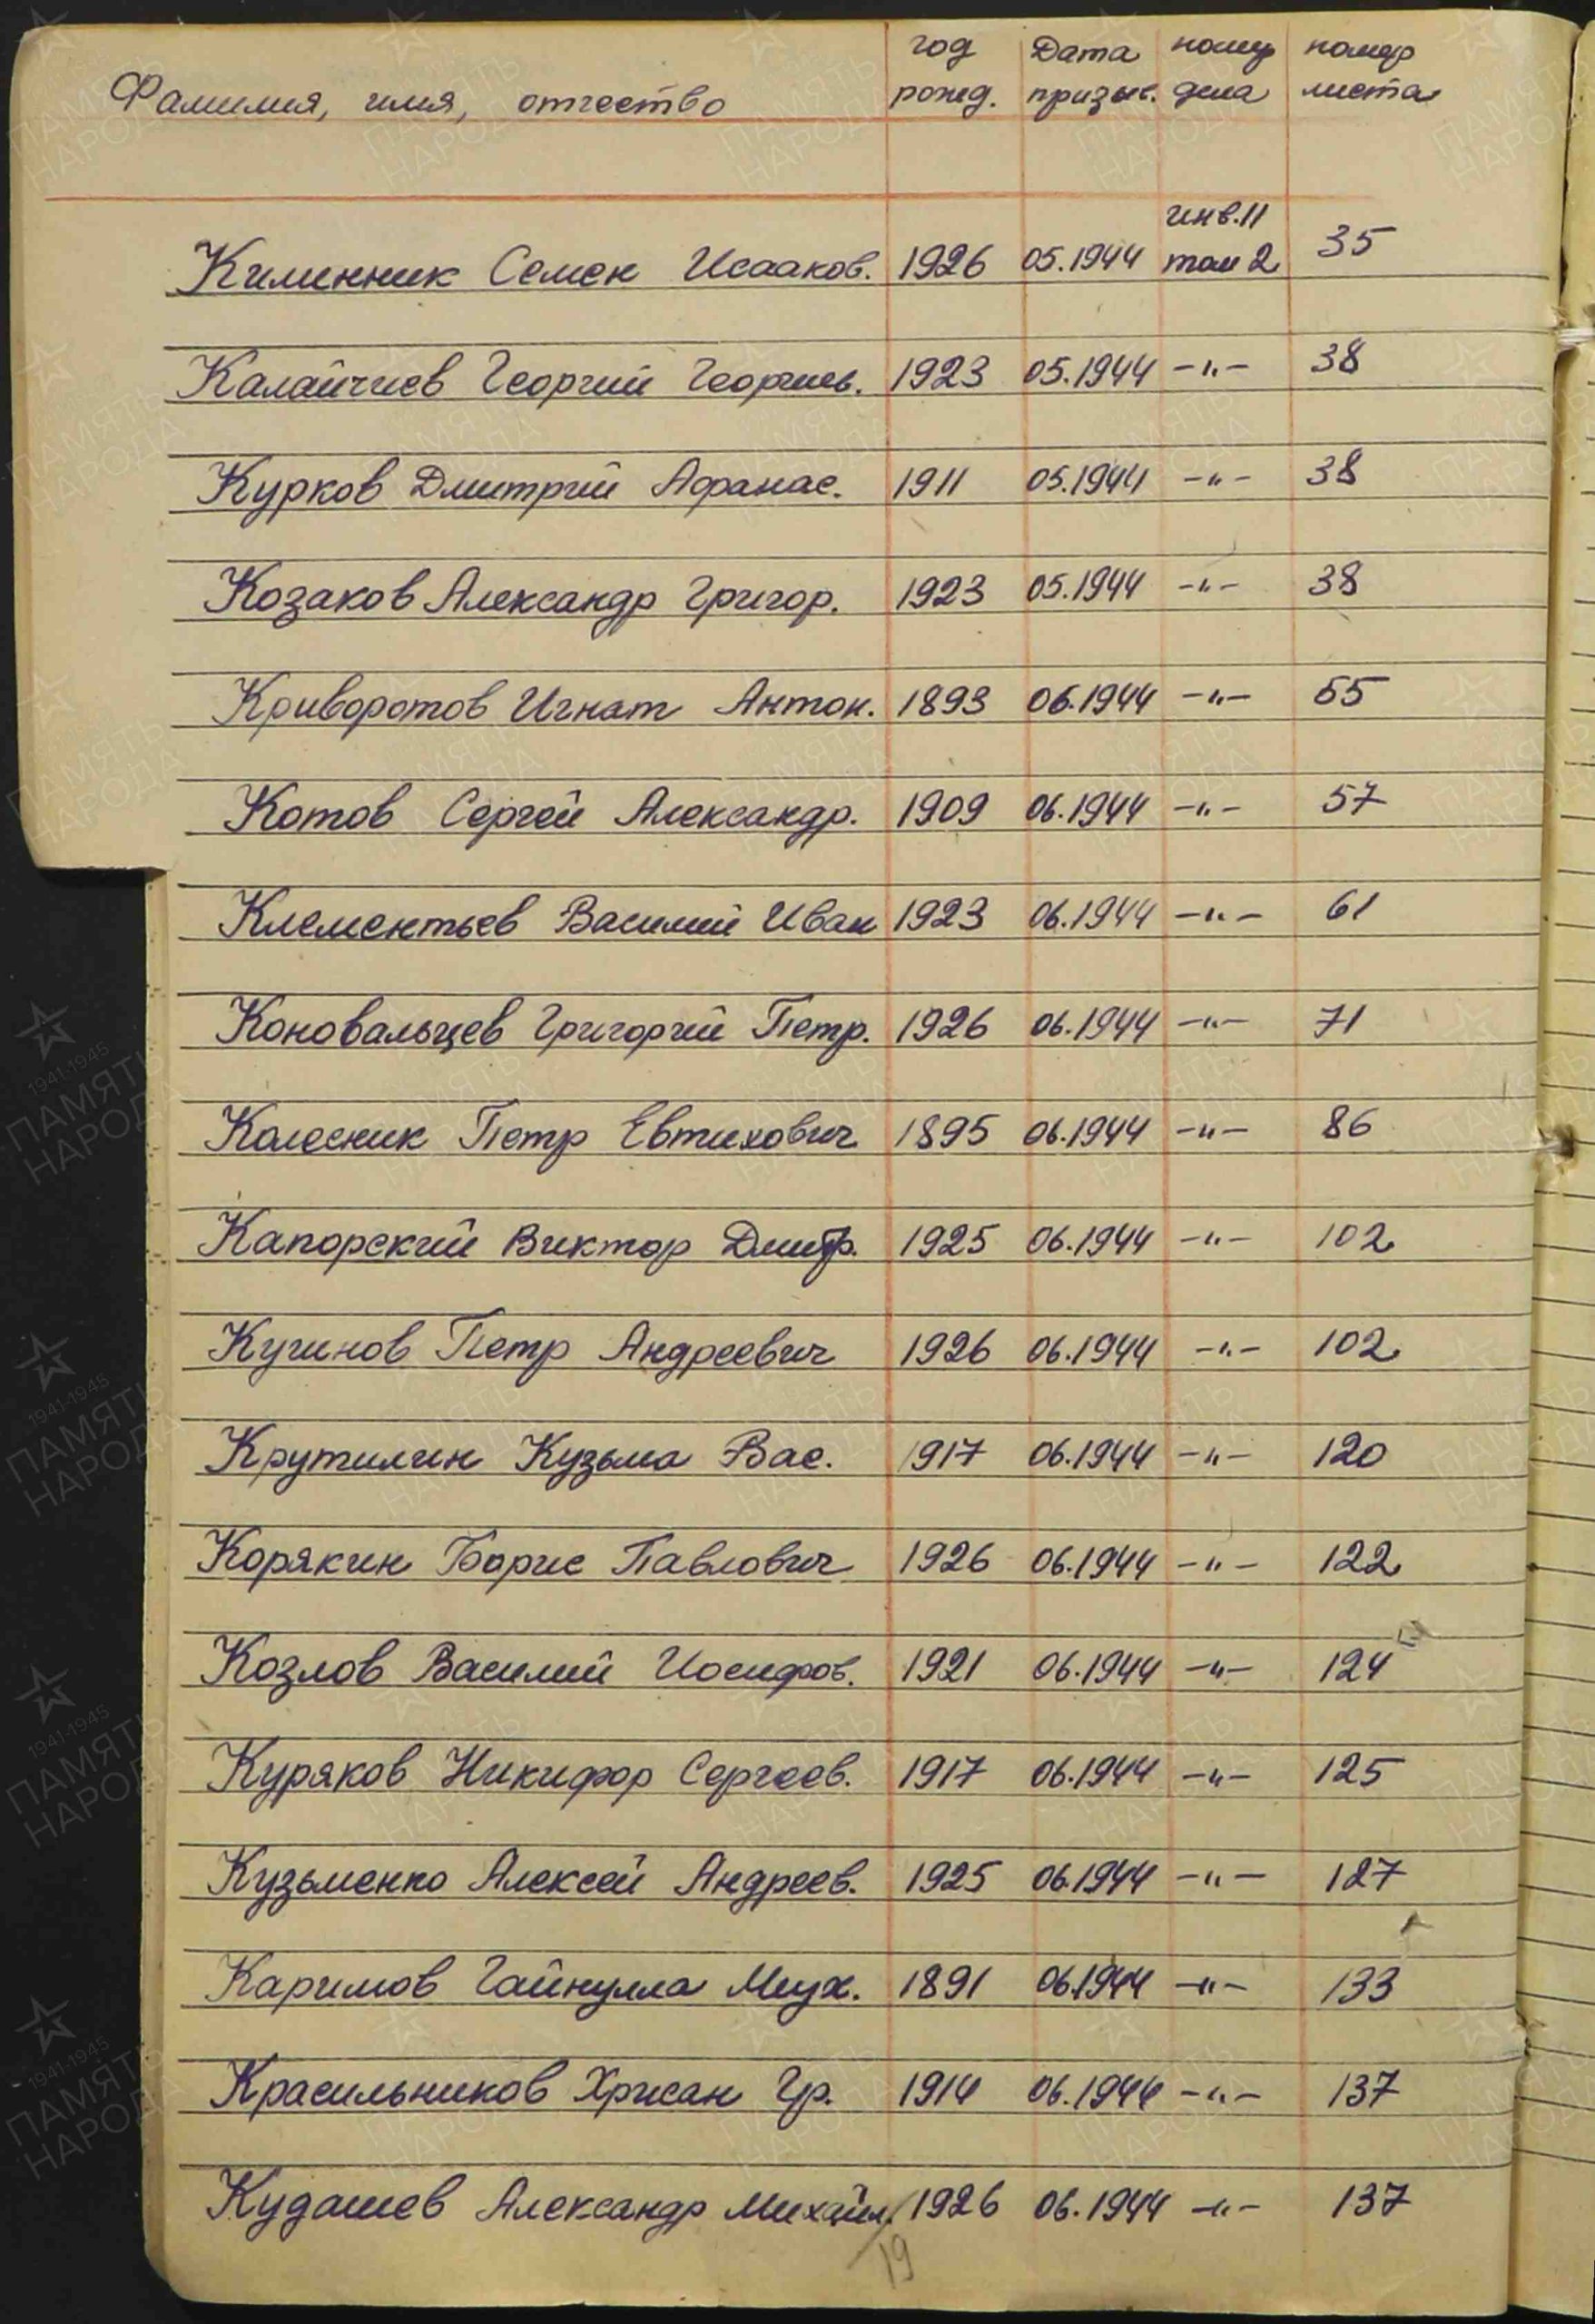 Фамилия, имя, отчество год рожд. Дата призыв. номер дела номер листа
Кименник Семен Исааков. 1926 05.1944 инв.11 том 2 35
Калайчиев Георгий Георгиев. 1923 05.1944 -"- 38
Курков Дмитрий Афанас. 1911 05.1944 -"- 38
Козаков Александр Григор. 1923 05.1944 -"- 38
Криворотов Игнат Антон. 1893 06.1944 -"- 55
Котов Сергей Александр. 1909 06.1944 -"- 57
Клементьев Василий Иван 1923 06.1944 -"- 61
Коновальцев Григорий Петр. 1926 06.1944 -"- 71
Колесник Петр Евтихович 1895 06.1944 -"- 86
Капорский Виктор Дмитр. 1925 06.1944 -"- 102
Кучинов Петр Андреевич 1926 06.1944 -"- 102
Крутилин Кузьма Вас. 1917 06.1944 -"- 120
Корякин Борис Павлович 1926 06.1944 -"- 122
Козлов Василий Иосифов. 1921 06.1944 -"- 124
Куряков Никифор Сергеев. 1917 06.1944 -"- 125
Кузьменко Алексей Андреев. 1925 06.1944 -"- 127
Каримов Гайнулла Мух. 1891 06.1944 -"- 133
Красильников Хрисан Гр. 1914 06.1944 -"- 137
Кудашев Александр Михайл. 1926 06.1944 -"- 137
19
ПАМЯТЬ НАРОДА
1941-1945